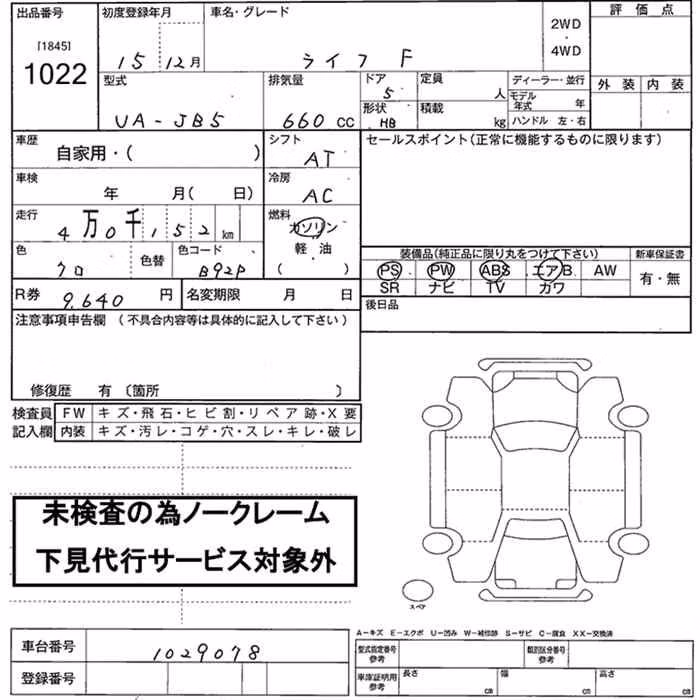 出品番号 初度登録年月 車名・グレード 2WD・4WD 評価点
[1845]
1022
15 12月 ライフ F
外装 内装
型式 排気量 ドア 定員 ディーラー・並行
UA-JB5 660 CC 5 人 モデル年式 年
形状 積載 ハンドル 左・右
HB kg
車歴 シフト セールスポイント(正常に機能するものに限ります)
自家用・( ) AT
車検 冷房
年 月( 日) AC
走行 燃料
4万0千152 km ガソリン・軽油
( )
色 色替 色コード
クロ B92P
装備品(純正品に限り丸をつけて下さい) 新車保証書
PS PW ABS エアB AW 有・無
SR ナビ TV カワ
R券 9,640 円 名変期限 月 日
後日品
注意事項申告欄 (不具合内容等は具体的に記入して下さい)
修復歴 有 〔箇所 〕
検査員 FW キズ・飛石・ヒビ割・リペア跡・X要
記入欄 内装 キズ・汚レ・コゲ・穴・スレ・キレ・破レ
未検査の為ノークレーム
下見代行サービス対象外
スペア
A-キズ E-エクボ U-凹み W-補修跡 S-サビ C-腐食 XX-交換済
車台番号 1029078
型式指定番号 参考 類別区分番号 参考
登録番号
車庫証明用 参考 長さ cm 幅 cm 高さ cm